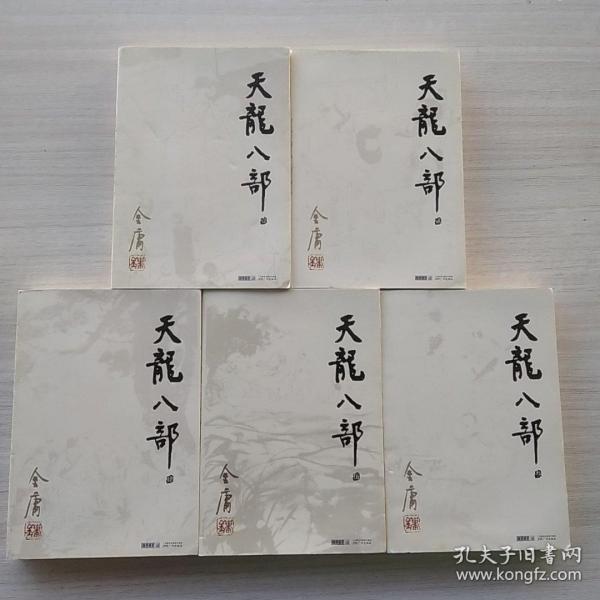 天龍八部
金庸
天龍八部
金庸
天龍八部
金庸
天龍八部
金庸
天龍八部
金庸
孔夫子旧書网
www.kongfz.com